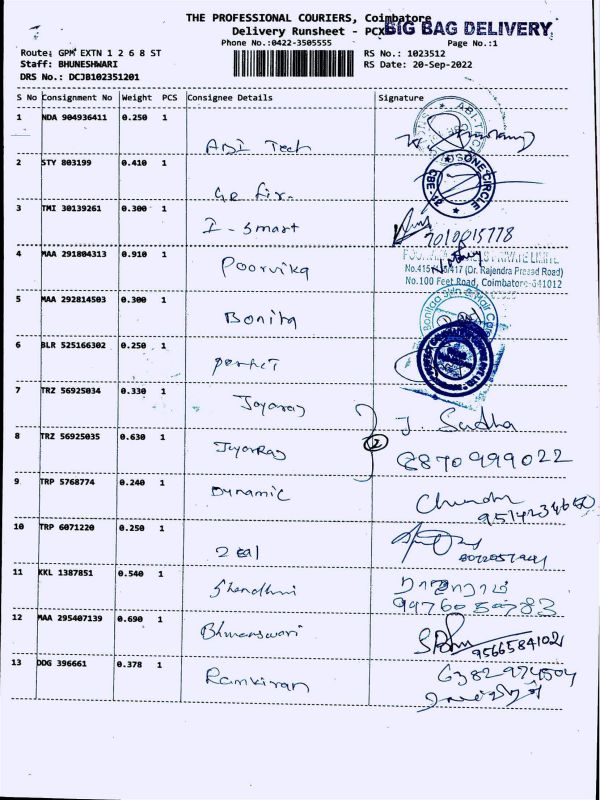 THE PROFESSIONAL COURIERS, Coimbatore
Delivery Runsheet - PCX BIG BAG DELIVERY
Phone No.:0422-3505555 Page No.:1
Route: GPM EXTN 1 2 6 8 ST RS No.: 1023512
Staff: BHUNESHWARI RS Date: 20-Sep-2022
DRS No.: DCJB102351201
S No Consignment No Weight PCS Consignee Details Signature
1 NDA 904936411 0.250 1
ABI Tech
2 STY 803199 0.410 1
ONE CIRCLE
CBE-12
Ge fix.
3 TMI 30139261 0.300 1
I-Smart
7010015778
4 MAA 291804313 0.910 1
Poorvika
PRIVATE LIMITE
(Dr. Rajendra Prasad Road)
No.100 Feet Road, Coimbatore-641012
5 MAA 292814503 0.300 1
Bonitaa Skin & Hair
Bonita
6 BLR 525166302 0.250 1
perfect
7 TRZ 56925034 0.330 1
Jayaraj
J. Sudha
8 TRZ 56925035 0.630 1
2
JayaRaj
8870999022
9 TRP 5768774 0.240 1
Dynamic
9514234650
10 TRP 6071220 0.250 1
zeal
11 KKL 1387851 0.540 1
Shandhini
12 MAA 295407139 0.690 1
Bhuvaneswari
9566584102
13 DDG 396661 0.378 1
6382974504
Ramkiran